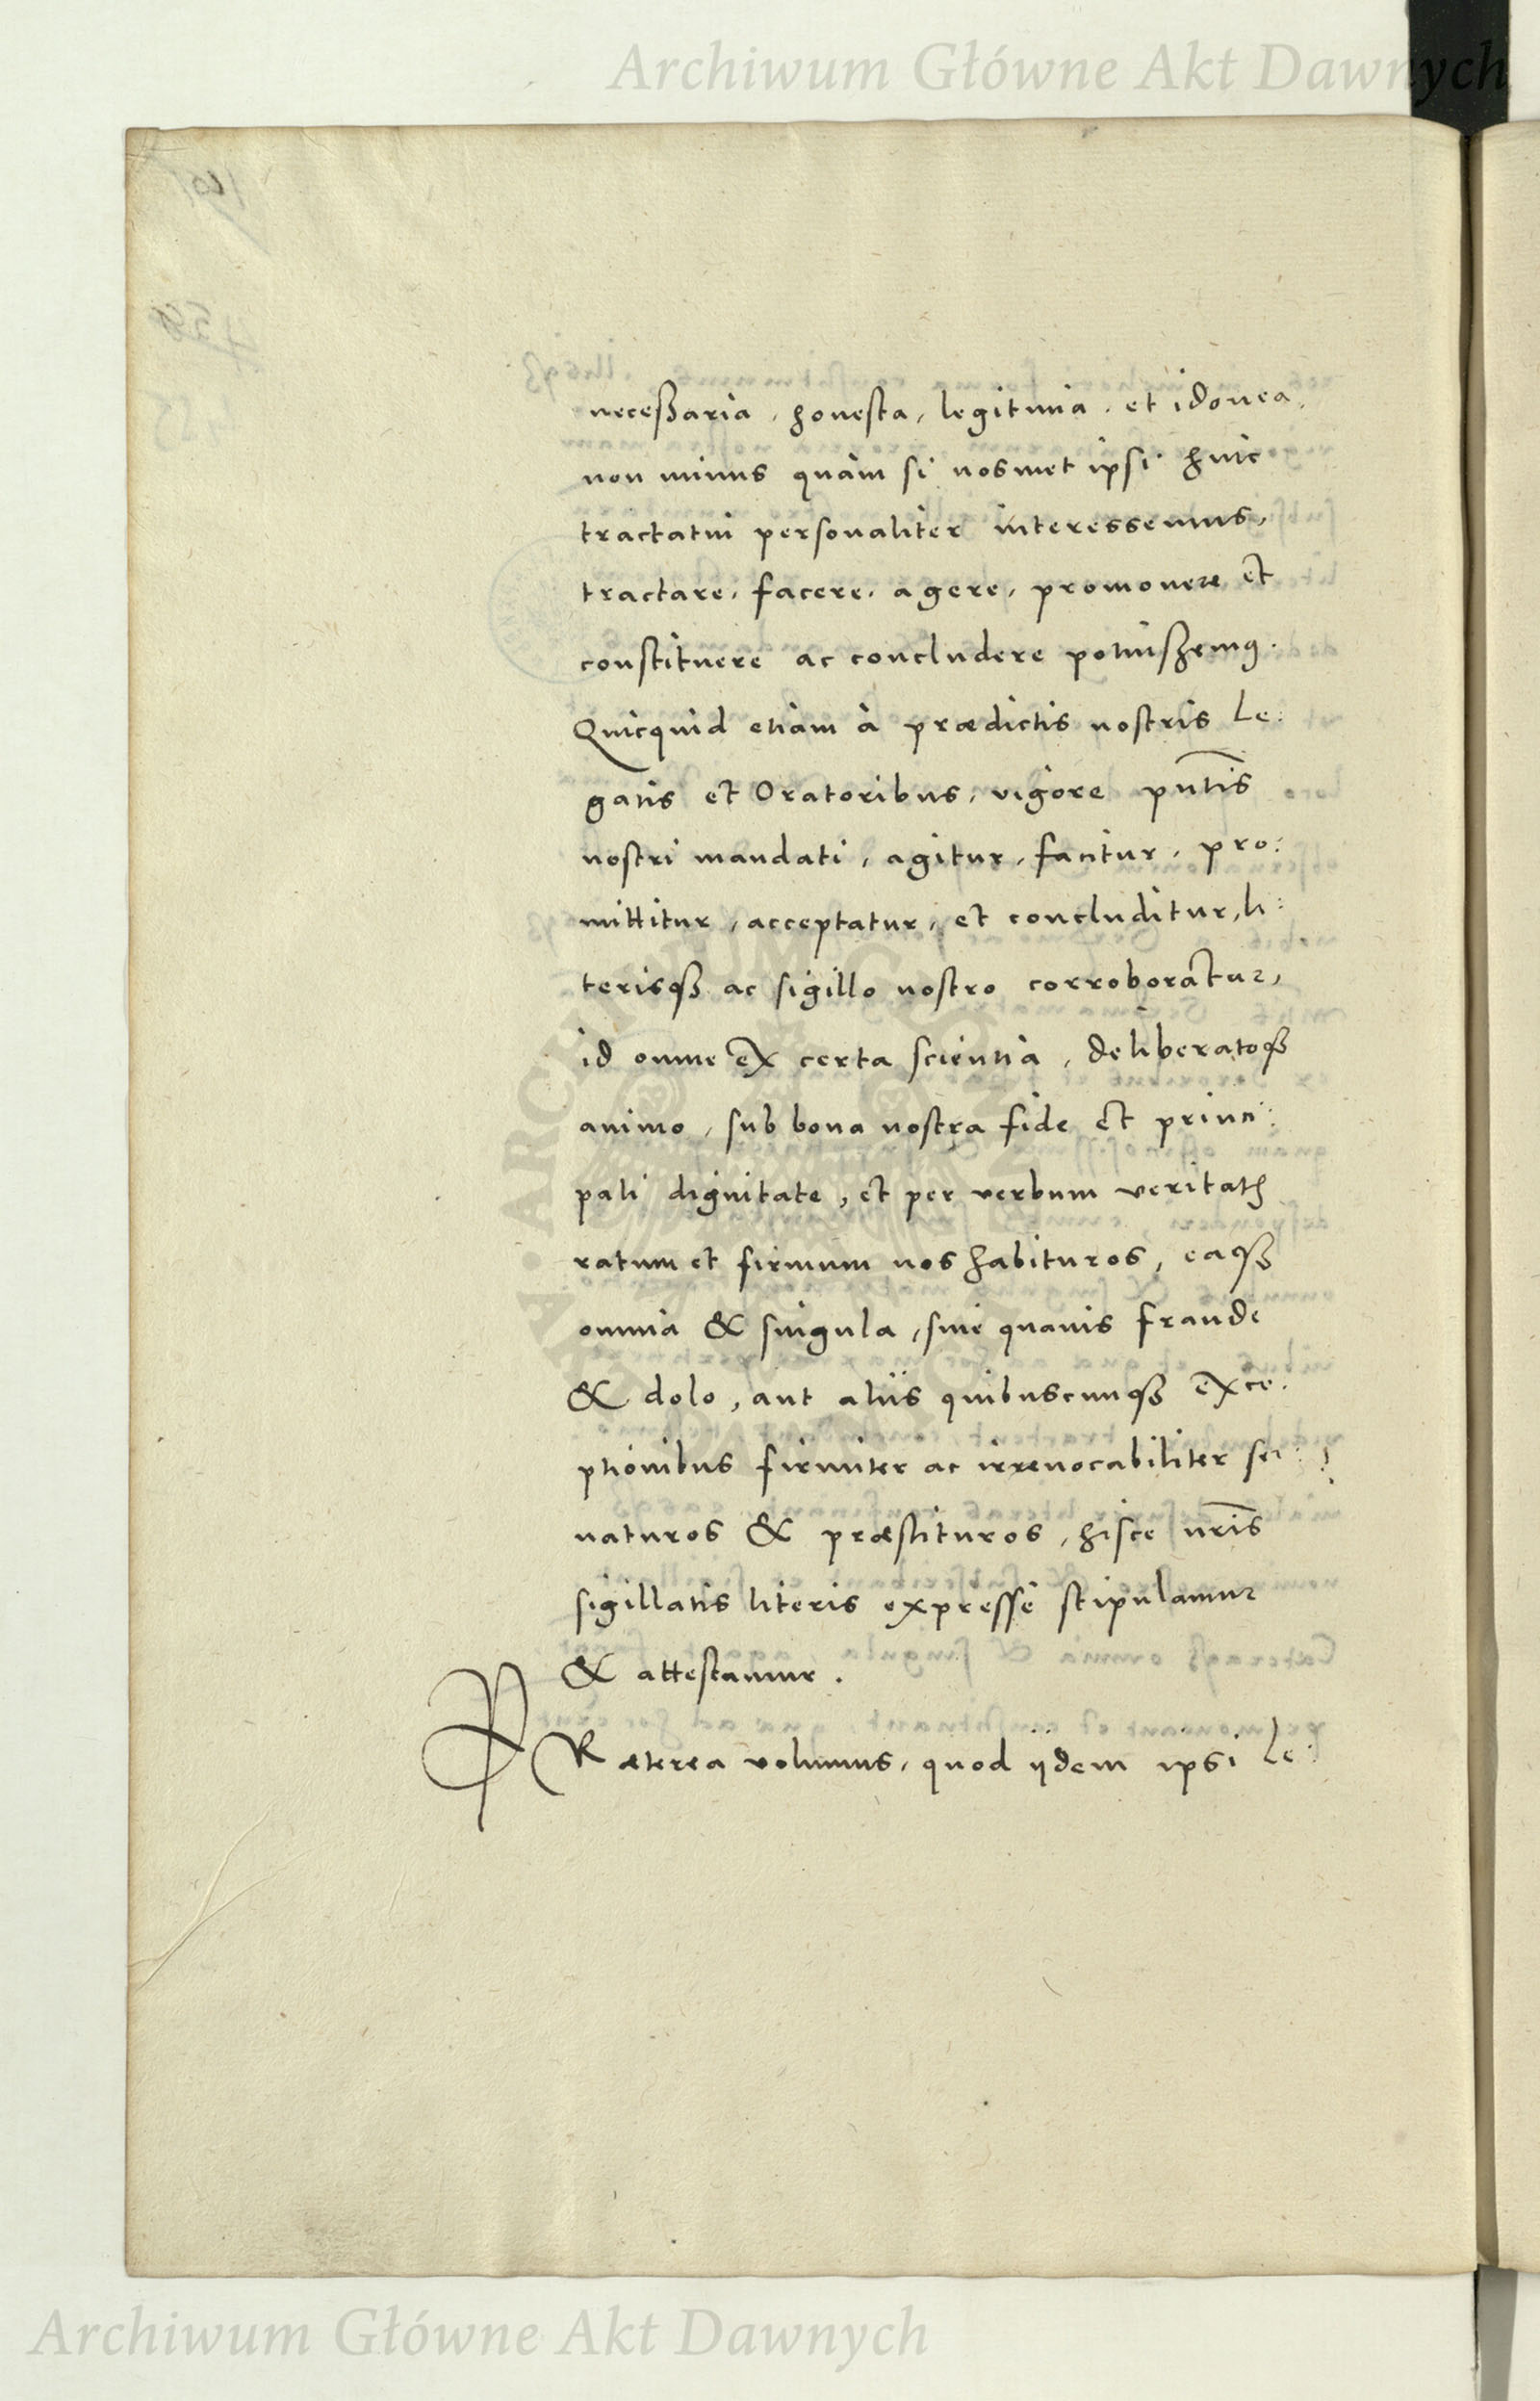 Archiwum Główne Akt Dawnych
neceßaria, honesta, legitima, et idonea,
non minus quàm si nosmet ipsi huic
tractatui personaliter interessemus,
tractare, facere, agere, promouere et
constituere ac concludere potuißemꝰ.
Quicquid etiam à prædictis nostris Le:
gatis et Oratoribus, vigore pn̄tis
nostri mandati, agitur, facitur, pro:
mittitur, acceptatur, et concluditur, li:
terisqꝫ ac sigillo nostro corroboratur,
id omne ex certa scientia, deliberatoqꝫ
animo, sub bona nostra fide et princi:
pali dignitate, et per verbum veritatis
ratum et firmum nos habituros, eaqꝫ
omnia & singula, sine quauis fraude
& dolo, aut alijs quibuscunqꝫ exce:
ptionibus firmiter ac irreuocabiliter ser:
uaturos & præstituros, hisce nr̄is
sigillatis literis expressè stipulamur
& attestamur.
PRæterea volumus, quod ijdem ipsi Le:
Archiwum Główne Akt Dawnych